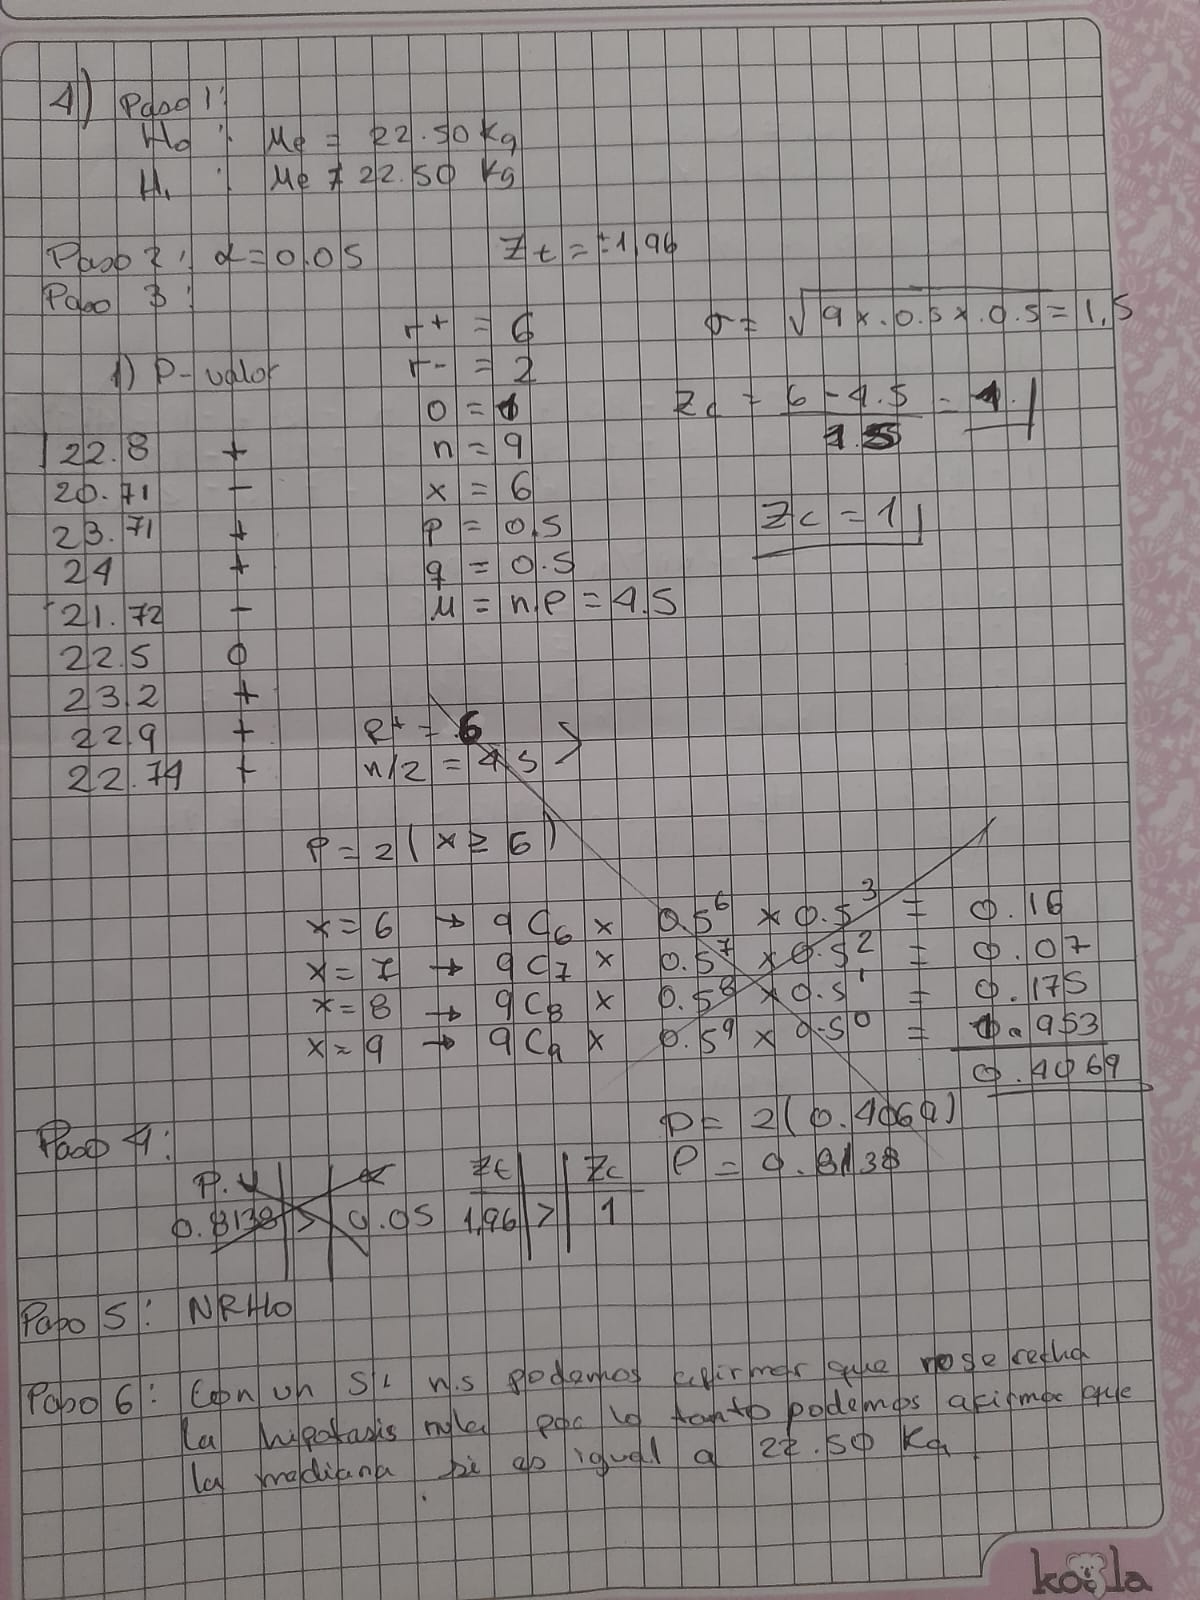 4) Paso 1:
H0 : Me = 22.50 Kg
H1 : Me ≠ 22.50 Kg
Paso 2: α = 0.05 Zt = ±1,96
Paso 3:
1) P-valor
22.8 +
20.71 -
23.71 +
24 +
21.72 -
22.5 0
23.2 +
22.9 +
22.74 +
r+ = 6
r- = 2
0 = 1
n = 9
x = 6
p = 0.5
q = 0.5
μ = n.p = 4.5
σ = √9 x .0.5 x .0.5 = 1.5
Zc = 6 - 4.5 / 1.5 = 1.
Zc = 1
R+ = 6
n/2 = 4.5 >
P = 2 ( x ≥ 6 )
x = 6 → 9C6 x 0.5^6 x 0.5^3 = 0.16
x = 7 → 9C7 x 0.5^7 x 0.5^2 = 0.07
x = 8 → 9C8 x 0.5^8 x 0.5^1 = 0.175
x = 9 → 9C9 x 0.5^9 x 0.5^0 = 1.953
0.4069
P = 2 ( 0.4069 )
P = 0.8138
Paso 4:
P.V α Zt Zc
0.8138 > 0.05 1,96 > 1
Paso 5: NRH0
Paso 6: Con un 5% n.s podemos afirmar que no se recha
la hipotasis nula por lo tanto podemos afirmar que
la mediana si es igual a 22.50 Kg
koala